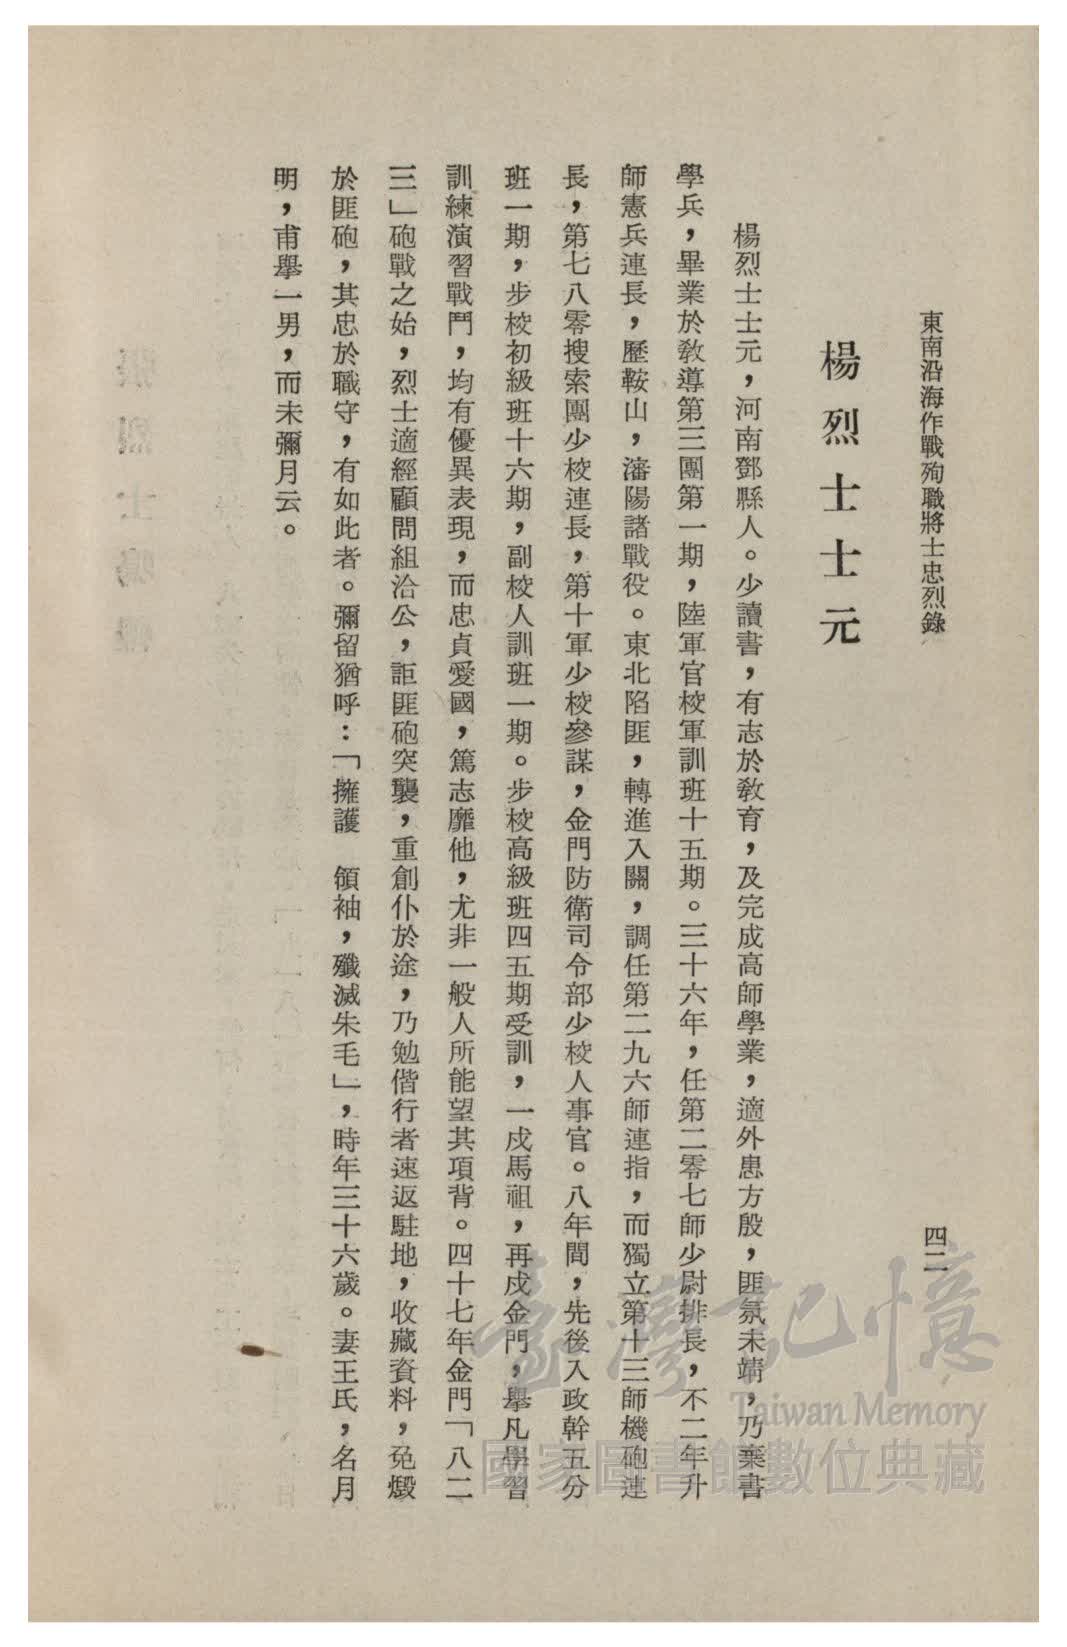 東南沿海作戰殉職將士忠烈錄
四二
楊烈士士元
楊烈士士元，河南鄧縣人。少讀書，有志於教育，及完成高師學業，適外患方殷，匪氛未靖，乃棄書
學兵，畢業於教導第三團第一期，陸軍官校軍訓班十五期。三十六年，任第二零七師少尉排長，不二年升
師憲兵連長，歷鞍山，瀋陽諸戰役。東北陷匪，轉進入關，調任第二九六師連指，而獨立第十三師機砲連
長，第七八零搜索團少校連長，第十軍少校參謀，金門防衛司令部少校人事官。八年間，先後入政幹五分
班一期，步校初級班十六期，副校人訓班一期。步校高級班四五期受訓，一戍馬祖，再戍金門，舉凡學習
訓練演習戰鬥，均有優異表現，而忠貞愛國，篤志靡他，尤非一般人所能望其項背。四十七年金門「八二
三」砲戰之始，烈士適經顧問組洽公，詎匪砲突襲，重創仆於途，乃勉偕行者速返駐地，收藏資料，免燬
於匪砲，其忠於職守，有如此者。彌留猶呼：「擁護　領袖，殲滅朱毛」，時年三十六歲。妻王氏，名月
明，甫舉一男，而未彌月云。
臺灣記憶
Taiwan Memory
國家圖書館數位典藏